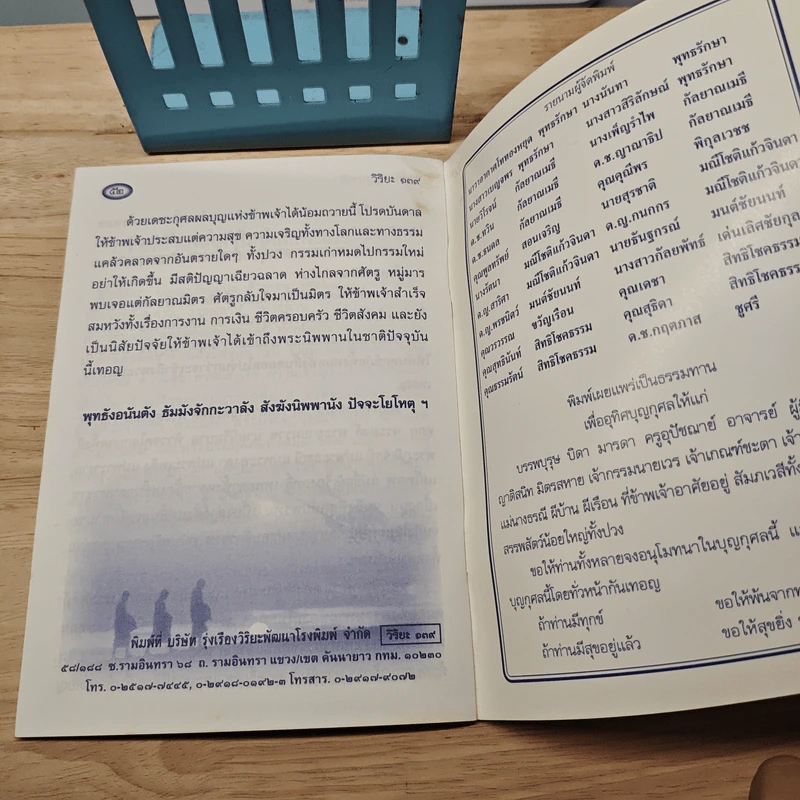 ๕๒
วิริยะ ๑๓๙
ด้วยเดชะกุศลผลบุญแห่งข้าพเจ้าได้น้อมถวายนี้ โปรดบันดาล
ให้ข้าพเจ้าประสบแต่ความสุข ความเจริญทั้งทางโลกและทางธรรม
แคล้วคลาดจากอันตรายใดๆ ทั้งปวง กรรมเก่าหมดไปกรรมใหม่
อย่าให้เกิดขึ้น มีสติปัญญาเฉียวฉลาด ห่างไกลจากศัตรู หมู่มาร
พบเจอแต่กัลยาณมิตร ศัตรูกลับใจมาเป็นมิตร ให้ข้าพเจ้าสำเร็จ
สมหวังทั้งเรื่องการงาน การเงิน ชีวิตครอบครัว ชีวิตสังคม และยัง
เป็นนิสัยปัจจัยให้ข้าพเจ้าได้เข้าถึงพระนิพพานในชาติปัจจุบัน
นี้เทอญ
พุทธังอนันตัง ธัมมังจักกะวาลัง สังฆังนิพพานัง ปัจจะโยโหตุ ฯ
พิมพ์ที่ บริษัท รุ่งเรืองวิริยะพัฒนาโรงพิมพ์ จำกัด วิริยะ ๑๓๙
๕๘/๑๘๘ ซ.รามอินทรา ๖๘ ถ. รามอินทรา แขวง/เขต คันนายาว กทม. ๑๐๒๓๐
โทร. ๐-๒๕๑๗-๗๔๔๕, ๐-๒๙๑๘-๐๑๙๒-๓ โทรสาร. ๐-๒๙๑๗-๙๐๗๒
รายนามผู้จัดพิมพ์
นาวาอากาศโททองหยุด พุทธรักษา นางนันทา พุทธรักษา
นางสาวเบญจพร พุทธรักษา นางสาวสิริลักษณ์ พุทธรักษา
นายวิโรจน์ กัลยาณเมธี นางเพ็ญรำไพ กัลยาณเมธี
ด.ช.ทวิน กัลยาณเมธี ด.ช.ญาณาธิป กัลยาณเมธี
ด.ช.ธนดล กัลยาณเมธี คุณคุณีพร พิกุลเวชช
คุณพูลทรัพย์ สอนเจริญ นายสุรชาติ มณีโชติแก้วจินดา
นางรัตนา มณีโชติแก้วจินดา ด.ญ.กนกกร มณีโชติแก้วจินดา
ด.ญ.สาริศา มณีโชติแก้วจินดา นายธันฐกรณ์ มนต์ชัยนนท์
ด.ญ.พรชนิตว์ มนต์ชัยนนท์ นางสาวกัลยพัทธ์ เด่นเลิศชัยกุล
คุณวรวรรณ ขวัญเรือน คุณเดชา สิทธิโชคธรรม
คุณสุทธินันท์ สิทธิโชคธรรม คุณสุธิดา สิทธิโชคธรรม
คุณธรรมรัตน์ สิทธิโชคธรรม ด.ช.กฤตภาส ชูศรี
พิมพ์เผยแพร่เป็นธรรมทาน
เพื่ออุทิศบุญกุศลให้แก่
บรรพบุรุษ บิดา มารดา ครูอุปัชฌาย์ อาจารย์
ญาติสนิท มิตรสหาย เจ้ากรรมนายเวร เจ้าเกณฑ์ชะตา
แม่นางธรณี ผีบ้าน ผีเรือน ที่ข้าพเจ้าอาศัยอยู่ สัมภเวสีทั้ง
สรรพสัตว์น้อยใหญ่ทั้งปวง
ขอให้ท่านทั้งหลายจงอนุโมทนาในบุญกุศลนี้
บุญกุศลนี้โดยทั่วหน้ากันเทอญ
ถ้าท่านมีทุกข์ ขอให้พ้นจาก
ถ้าท่านมีสุขอยู่แล้ว ขอให้สุขยิ่ง